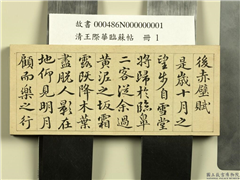 故書 000486N000000001
清王際華臨蘇帖 冊 1
後赤壁賦
是歲十月之
望步自雪堂
將歸于臨皋
二客從余過
黃泥之坂霜
露既降木葉
盡脫人影在
地仰見明月
顧而樂之行